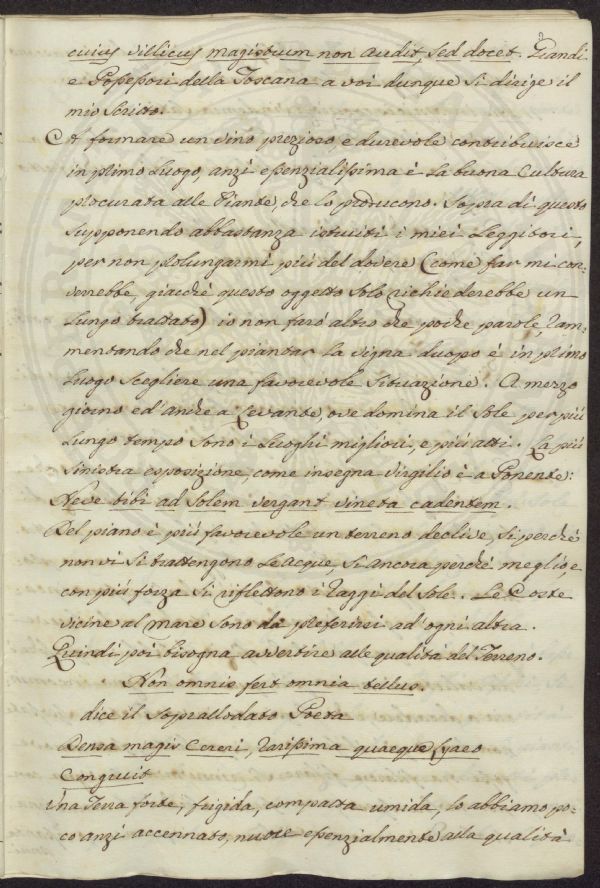 cuius villicus magistrum non audit, sed docet. Grandi
e Possessori della Toscana a voi dunque si dirige il
mio Scritto.
A formare un vino prezioso e durevole contribuisce
in primo Luogo, anzi essenzialissima è La buona Cultura
procurata alle Piante, che lo producono. Sopra di questo
supponendo abbastanza istruiti i miei Leggitori,
per non prolungarmi più del dovere (come far mi con-
verrebbe, giacchè questo oggetto solo richiederebbe un
Lungo trattato) io non farò altro che poche parole, ram-
mentando che nel piantar la vigna duopo è in primo
Luogo scegliere una favorevole situazione. A mezzo
giorno ed' anche a Levante, ove domina il Sole per più
Lungo tempo sono i Luoghi migliori, e più atti. La più
sinistra esposizione, come insegna Virgilio è a Ponente:
Neve tibi ad Solem vergant vineta cadentem.
Del piano è più favorevole un terreno declive, sì perchè
non vi si trattengono Le acque, sì ancora perchè meglio, e
con più forza si riflettono i raggi del Sole. Le Coste
vicine al mare sono da preferirsi ad' ogni altra.
Quindi poi bisogna avvertire alle qualità del Terreno.
Non omnis fert omnia tellus.
dice il soprallodato Poeta
Densa magis Cereri, rarissima quaeque Lyaeo
Congruit
Una Terra forte, frigida, compatta umida, lo abbiamo po-
co anzi accennato, nuoce essenzialmente alla qualità